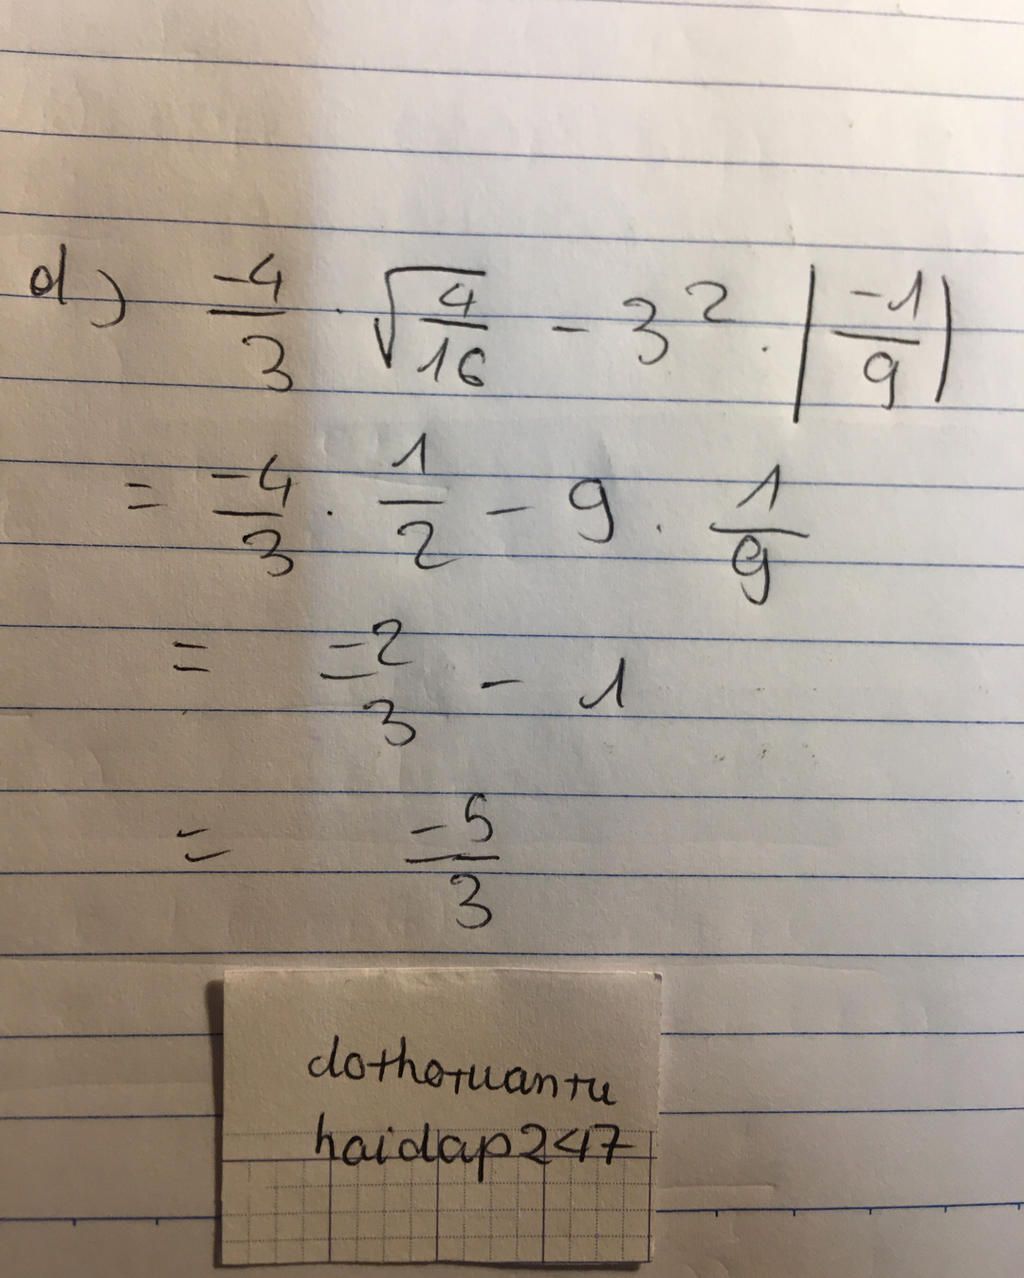 d) -4/3 · √(4/16) - 3² · |-1/9|
= -4/3 · 1/2 - 9 · 1/9
= -2/3 - 1
= -5/3
dothotuantu
haidap247